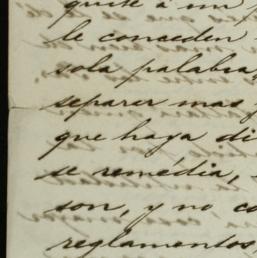 quite á un
le conceden
sola palabra
separer mas
que haya di
se remédia,
son, y no co
reglamentos,